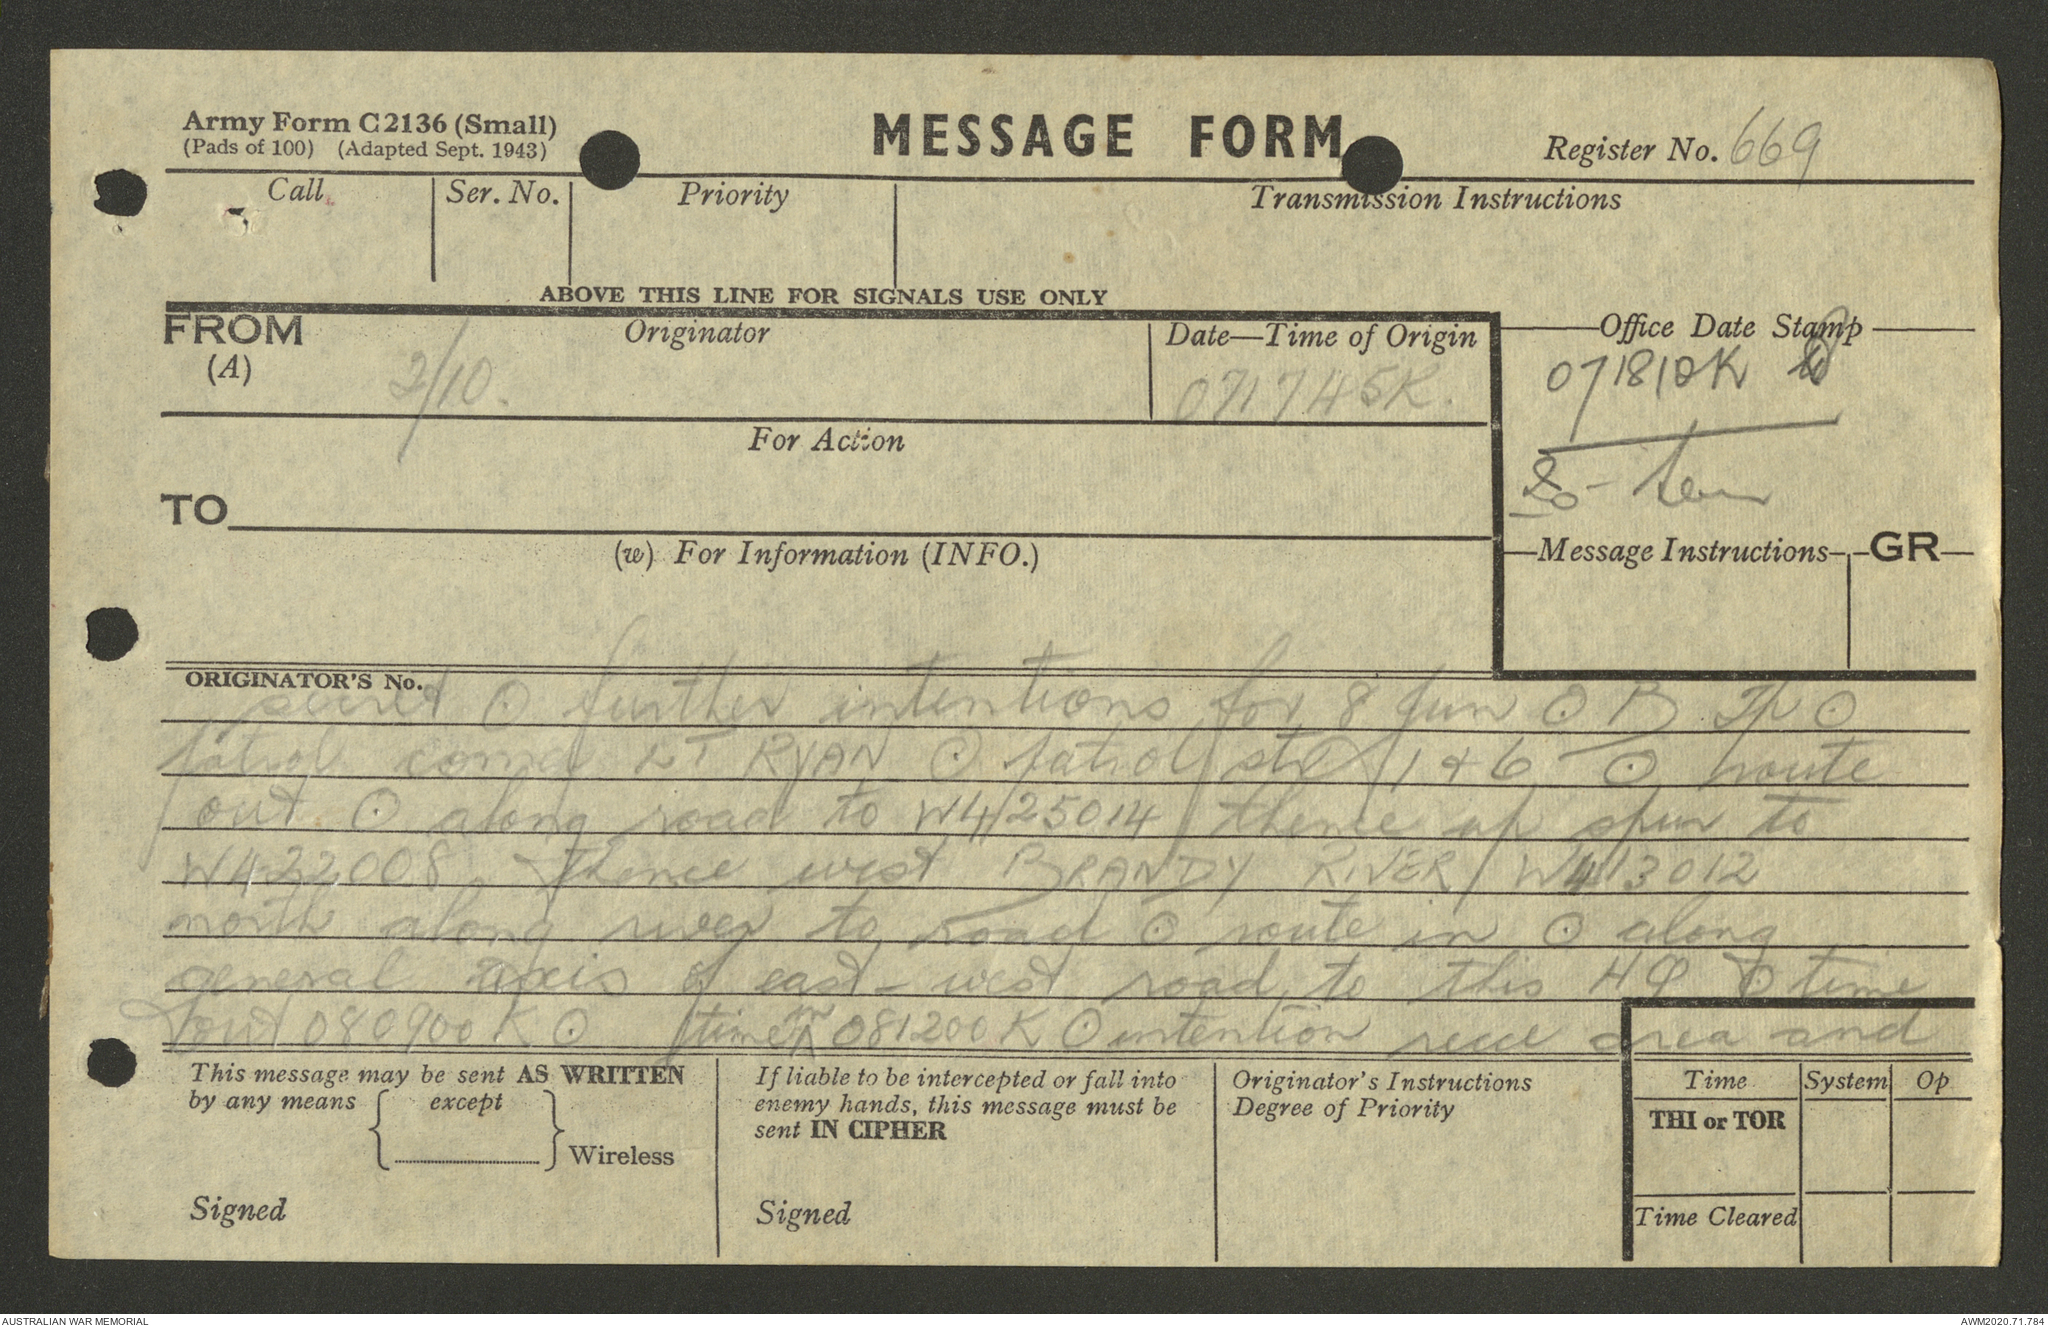 Army Form C2136 (Small)
(Pads of 100) (Adapted Sept. 1943)
MESSAGE FORM
Register No. 669
Call
Ser. No.
Priority
Transmission Instructions
ABOVE THIS LINE FOR SIGNALS USE ONLY
FROM
(A)
Originator
2/10.
Date—Time of Origin
071745K.
Office Date Stamp
071810K
For Action
TO
(w) For Information (INFO.)
Message Instructions
GR
ORIGINATOR'S No.
secret ⊙ further intentions for 8 Jun ⊙ B Tp ⊙
patrol comd LT RYAN ⊙ patrol str 1 + 6 ⊙ route
out ⊙ along road to W425014 thence up spur to
W422008, thence west BRANDY RIVER W413012
north along river to road ⊙ route in ⊙ along
general axis of east - west road to this HQ ⊙ time
out 080900K ⊙ time in 081200K ⊙ intention recce area and
This message may be sent AS WRITTEN
by any means except
Wireless
Signed
If liable to be intercepted or fall into
enemy hands, this message must be
sent IN CIPHER
Signed
Originator's Instructions
Degree of Priority
Time
System
Op
THI or TOR
Time Cleared
AUSTRALIAN WAR MEMORIAL
AWM2020.71.784